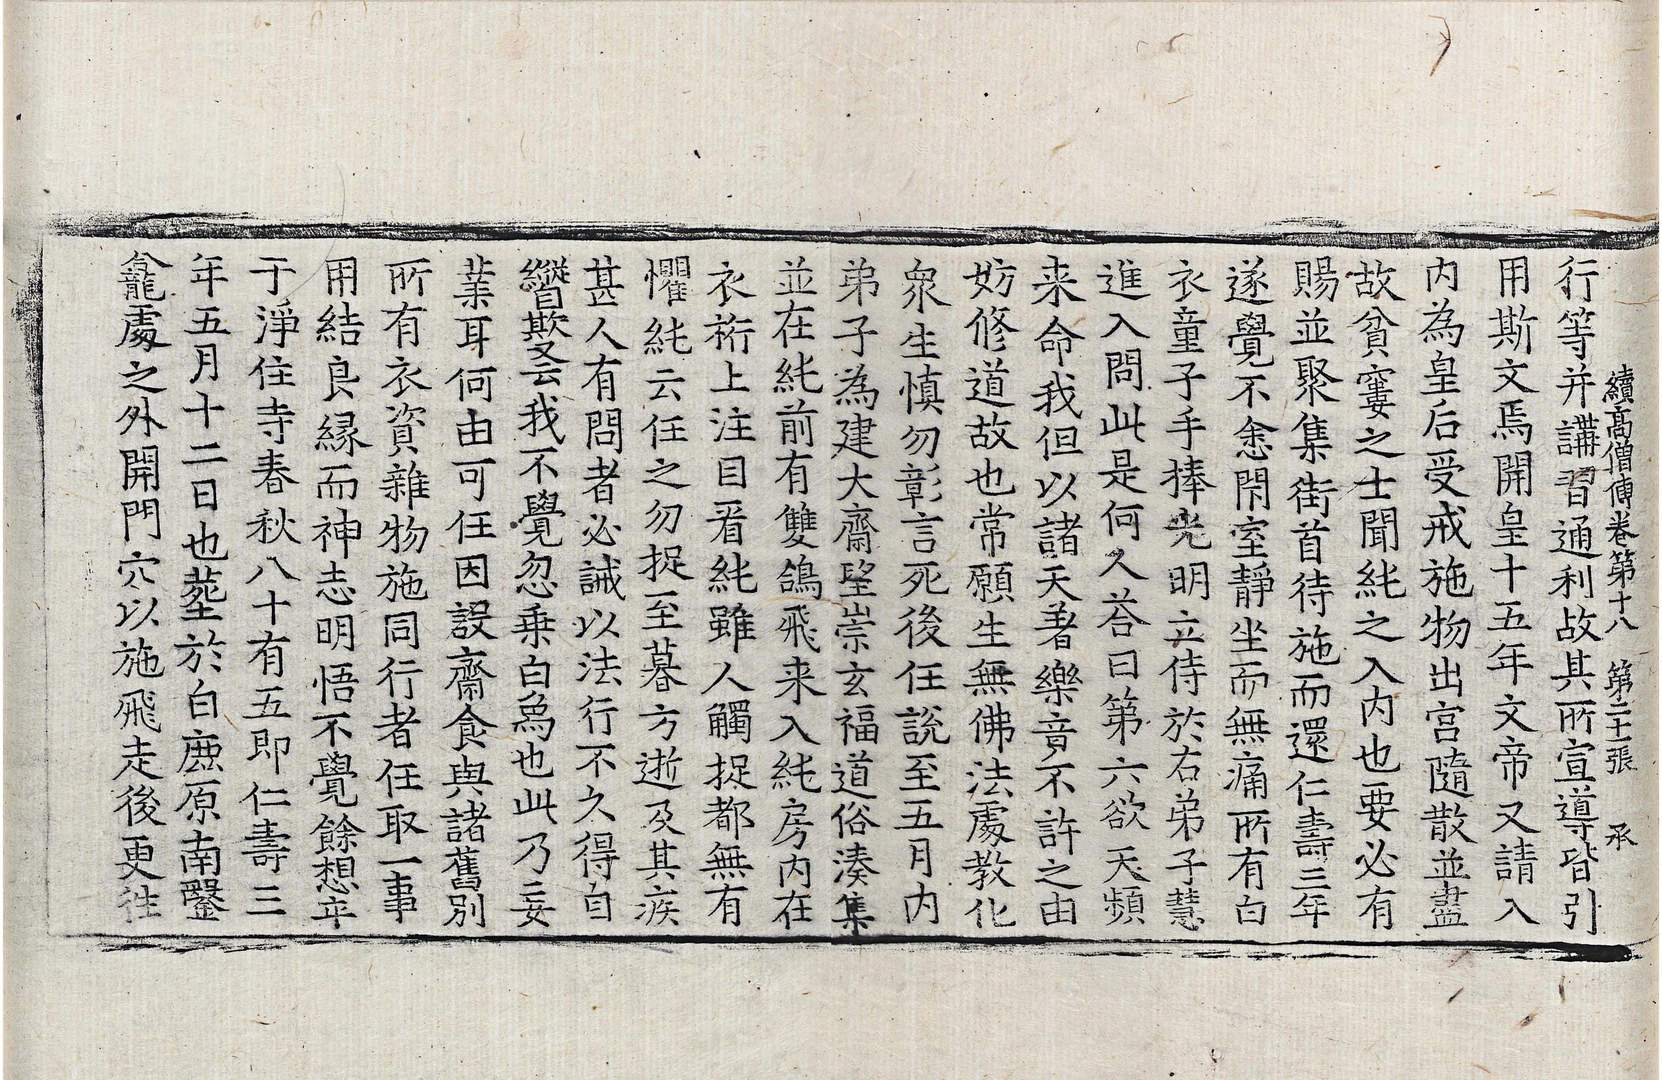 續高僧傳卷第十八　第二十一張　承
行等并講習通利故其所宣導皆引
用斯文焉開皇十五年文帝又請入
内為皇后受戒施物出宮隨散並盡
故貧窶之士聞純之入内也要必有
賜並聚集街首待施而還仁壽三年
遂覺不悆閇室靜坐而無痛所有白
衣童子手捧光明立侍於右弟子慧
進入問此是何人荅曰第六欲天頻
来命我但以諸天著樂音不許之由
妨修道故也常願生無佛法處教化
衆生慎勿彰言死後任說至五月内
弟子為建大齋望崇玄福道俗湊集
並在純前有雙鴿飛来入純房内在
衣桁上注目看純雖人觸捉都無有
懼純云任之勿捉至暮方逝及其疾
甚人有問者必誡以法行不久得自
縱實欺云我不覺忽乗白烏也此乃妄
業耳何由可任因設齋食與諸舊別
所有衣資雜物施同行者任取一事
用結良緣而神志明悟不覺餘想卒
于淨住寺春秋八十有五即仁壽三
年五月十二日也葬於白鹿原南鑿
龕處之外開門穴以施飛走後更往